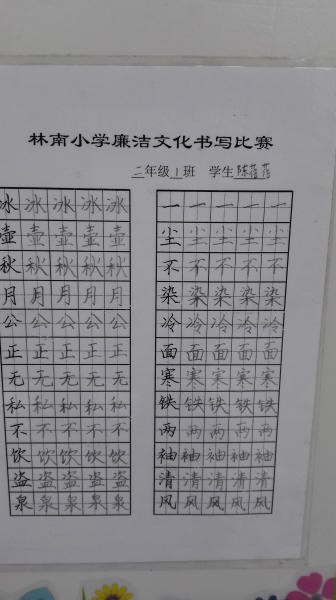 林南小学廉洁文化书写比赛
二年级1班 学生陈
冰冰冰冰冰
壶壶壶壶壶
秋秋秋秋秋
月月月月月
公公公公公
正正正正正
无无无无无
私私私私私
不不不不不
饮饮饮饮饮
盗盗盗盗盗
泉泉泉泉泉
一一一一一
尘尘尘尘尘
不不不不不
染染染染染
冷冷冷冷冷
面面面面面
寒寒寒寒寒
铁铁铁铁铁
两两两两两
袖袖袖袖袖
清清清清清
风风风风风